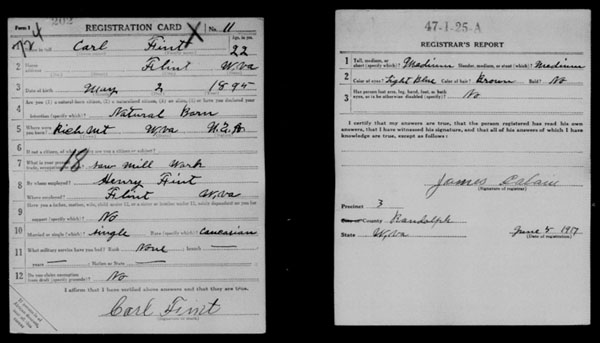 Form 1
202
REGISTRATION CARD
No. 11
X
724
Name in full
Carl Fint
Age, in yrs
22
2 Home address
Flint W.Va
3 Date of birth
May 2 1895
4 Are you (1) a natural-born citizen, (2) a naturalized citizen, (3) an alien, (4) or have you declared your
intention (specify which)?
Natural Born
5 Where were you born?
Rich Mt W.Va U.S.A
6 If not a citizen, of what country are you a citizen or subject?
7 What is your present trade, occupation, or office?
18
Saw Mill Work
8 By whom employed?
Henry Fint
Where employed?
Flint W.Va
9 Have you a father, mother, wife, child under 12, or a sister or brother under 12, solely dependent on you for
support (specify which)?
No
10 Married or single (which)?
Single
Race (specify which)?
Caucasian
11 What military service have you had? Rank
None
; branch
years
; Nation or State
12 Do you claim exemption
from draft (specify grounds)?
No
I affirm that I have verified above answers and that they are true.
Carl Fint
(Signature or mark)
47-1-25-A
REGISTRAR'S REPORT
1 Tall, medium, or
short (specify which)?
Medium
Slender, medium, or stout (which)?
Medium
2 Color of eyes?
Light Blue
Color of hair?
Brown
Bald?
No
3 Has person lost arm, leg, hand, foot, or both
eyes, or is he otherwise disabled (specify)?
No
I certify that my answers are true, that the person registered has read his own
answers, that I have witnessed his signature, and that all of his answers of which I have
knowledge are true, except as follows:
James
(Signature of registrar)
Precinct 3
City or County Randolph
State W.Va
June 5 1917
(Date of registration)